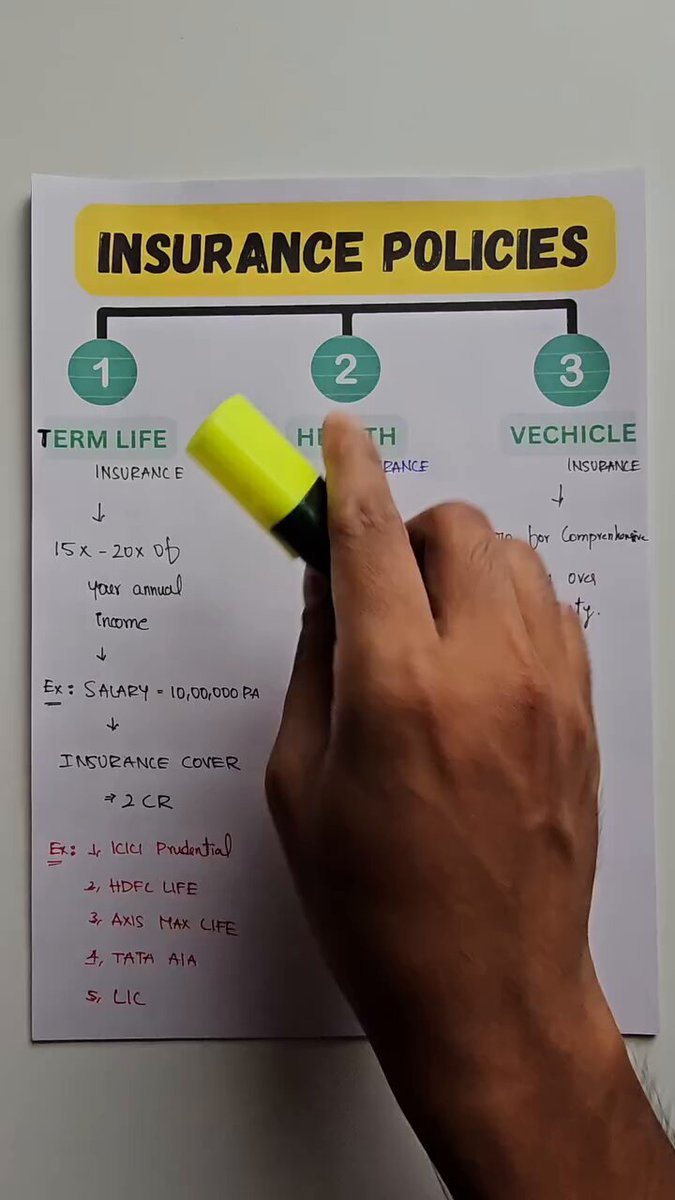 INSURANCE POLICIES
1
TERM LIFE
INSURANCE
↓
15x - 20x of
your annual
Income
↓
Ex: SALARY = 10,00,000 PA
↓
INSURANCE COVER
⇒ 2 CR
Ex: 1, ICICI Prudential
2, HDFC LIFE
3, AXIS MAX LIFE
4, TATA AIA
5, LIC
2
3
VECHICLE
INSURANCE
↓
for Comprenhensive
over